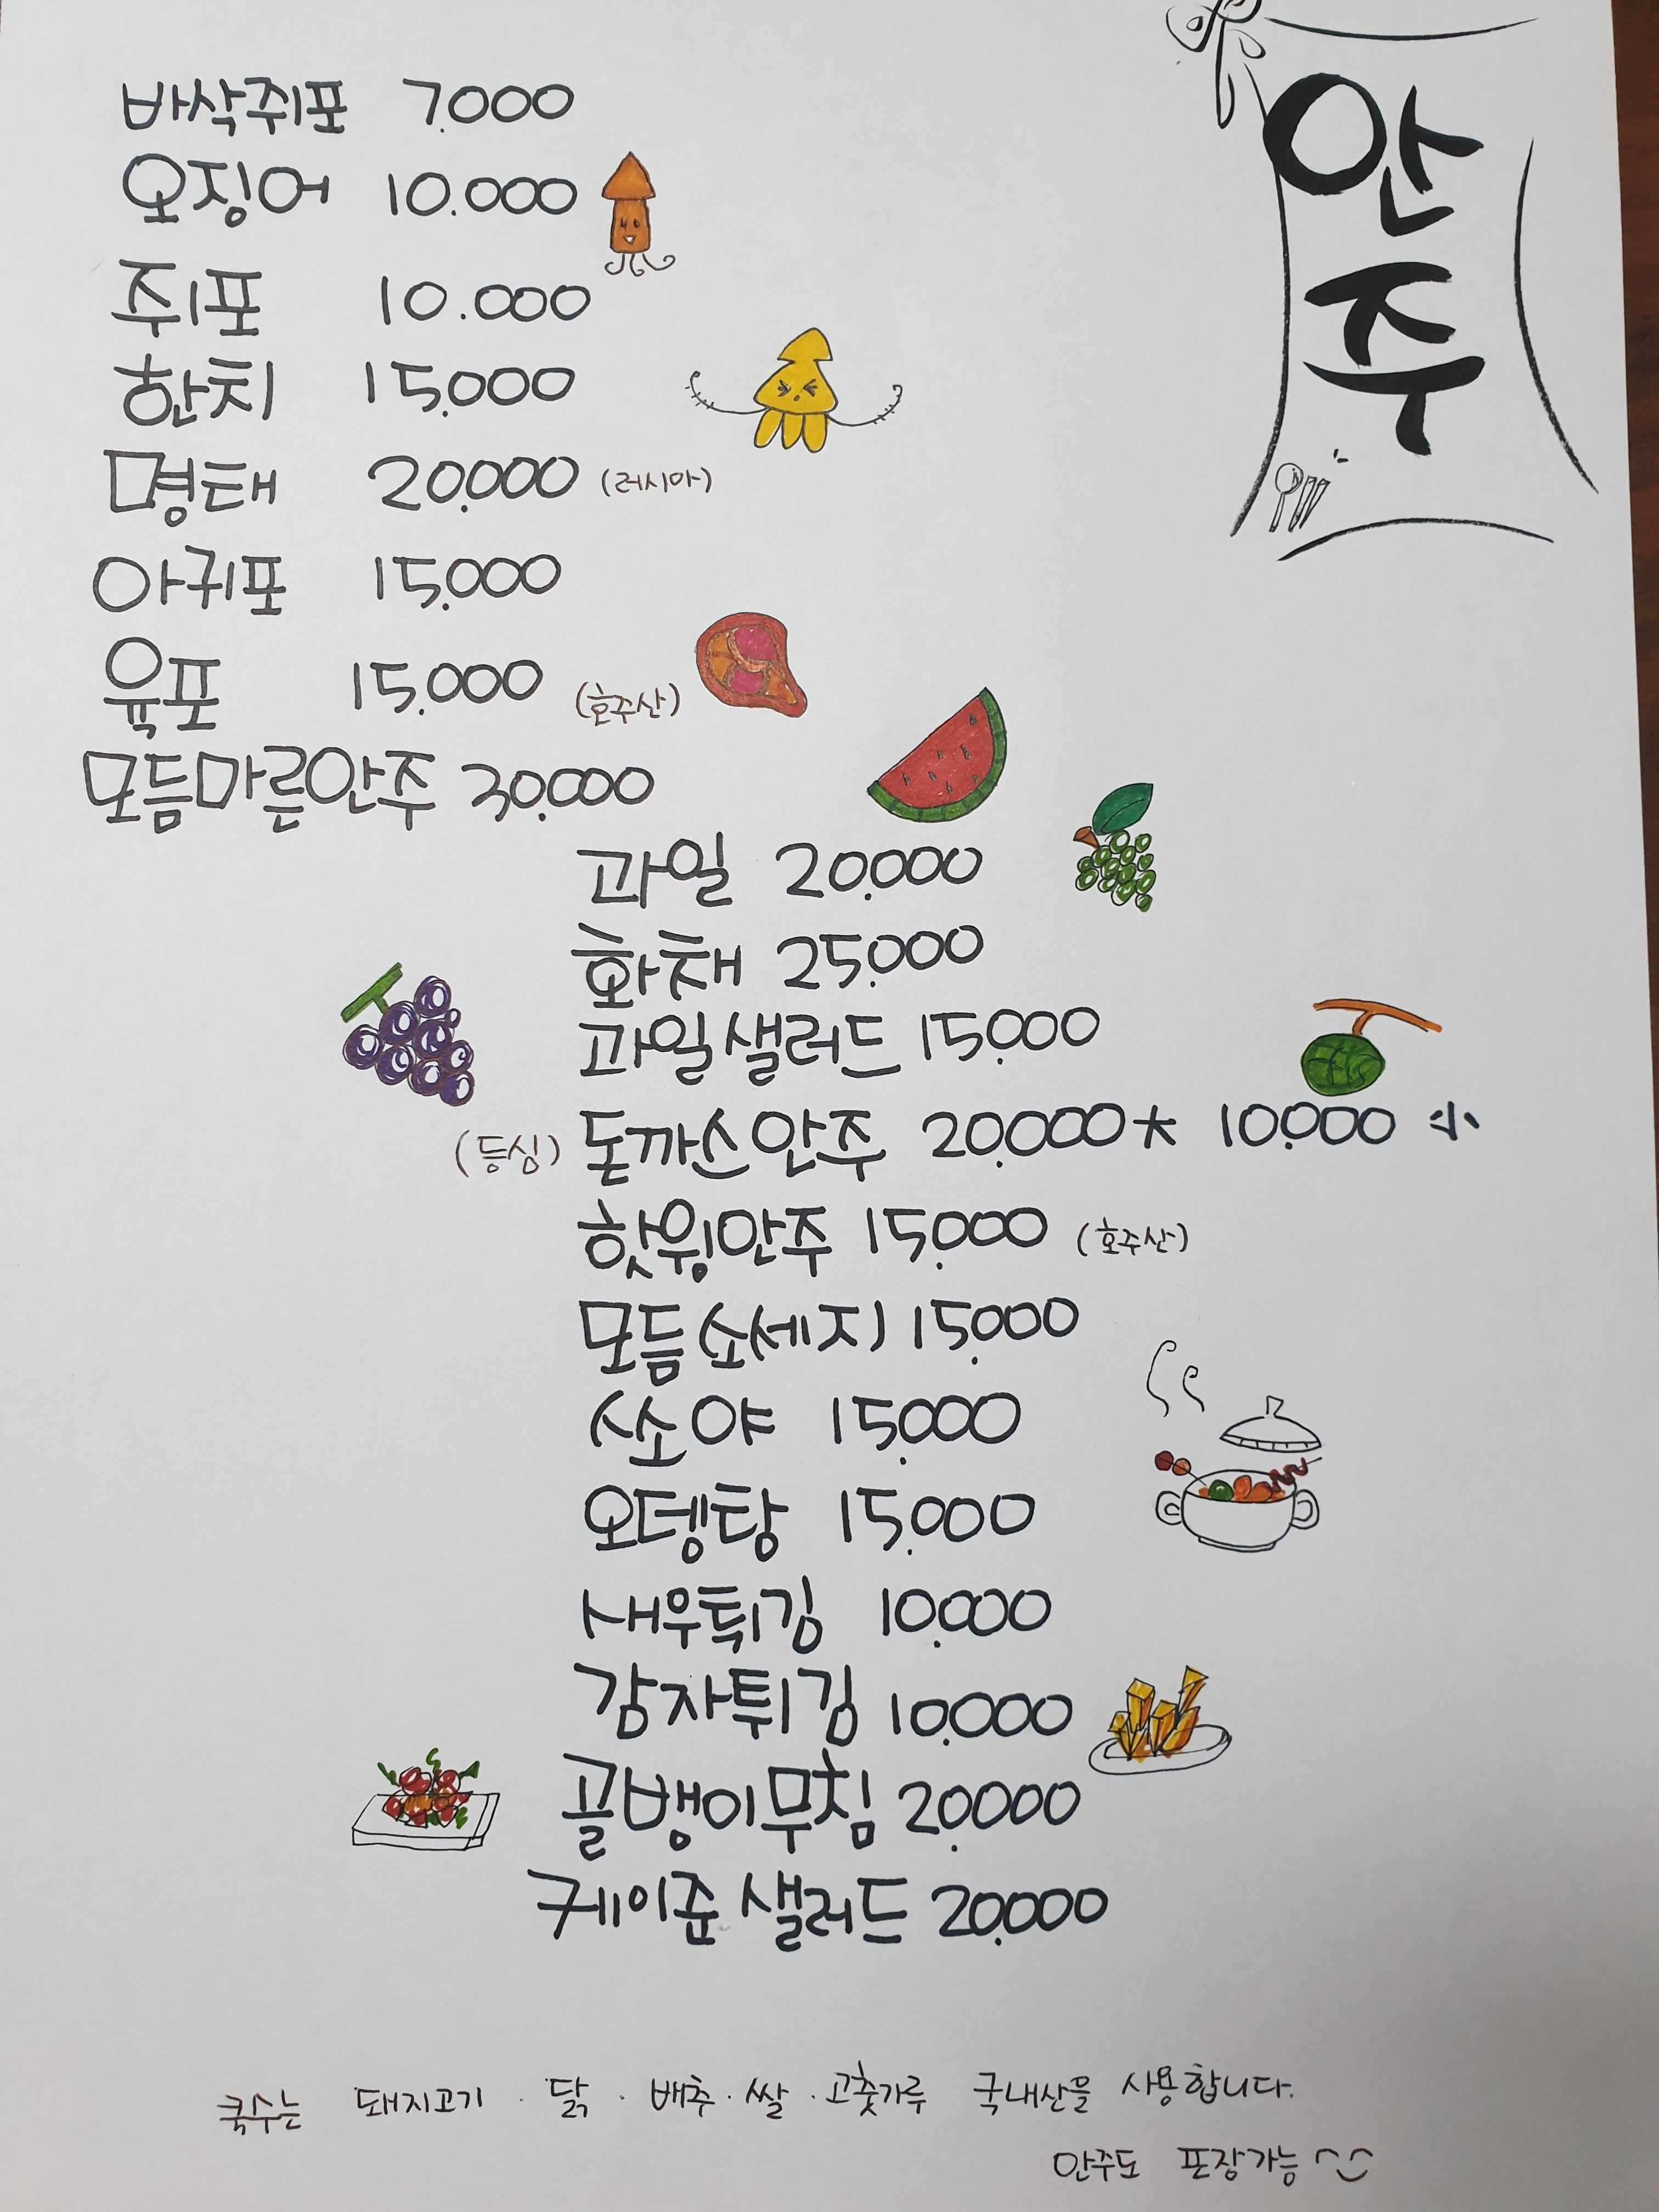 안주
바삭쥐포 7.000
오징어 10.000
쥐포 10.000
한치 15.000
명태 20.000 (러시아)
아귀포 15.000
육포 15.000 (호주산)
모듬마른안주 30.000
과일 20.000
화채 25.000
과일샐러드 15.000
(등심) 돈까스안주 20.000大 10.000 小
핫윙안주 15.000 (호주산)
모듬소세지 15.000
쏘야 15.000
오뎅탕 15.000
새우튀김 10.000
감자튀김 10.000
골뱅이무침 20.000
케이준샐러드 20.000
쿡수는 돼지고기 · 닭 · 배추 · 쌀 · 고춧가루 국내산을 사용합니다.
안주도 포장가능